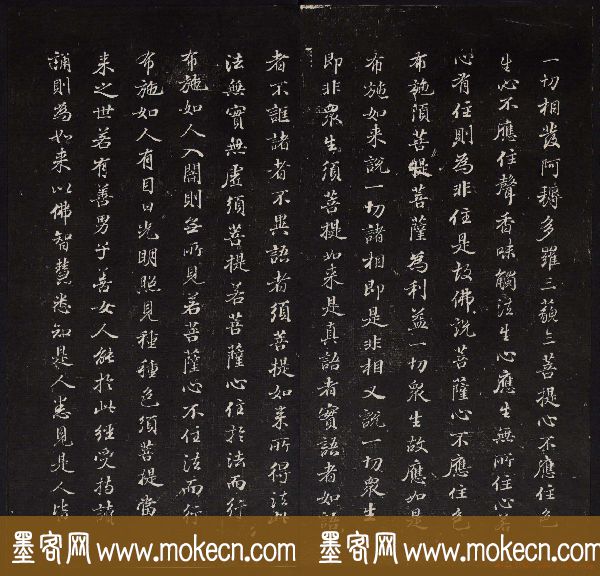 一切相發阿耨多羅三藐三菩提心不應住色
生心不應住聲香味觸法生心應生無所住心若
心有住則為非住是故佛說菩薩心不應住色
布施須菩提菩薩為利益一切衆生故應如是
布施如来說一切諸相即是非相又說一切衆生
即非衆生須菩提如来是真語者實語者如語
者不誑語者不異語者須菩提如来所得法此
法無實無虛須菩提若菩薩心住於法而行
布施如人入闇則無所見若菩薩心不住法而行
布施如人有目日光明照見種種色須菩提當
来之世若有善男子善女人能於此經受持讀
誦則為如来以佛智慧悉知是人悉見是人皆
墨客网 www.mokecn.com 墨客网 www.mokecn.com